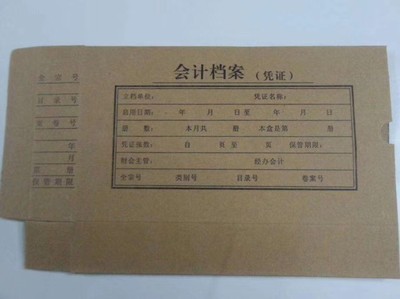 会计档案（凭证）
立档单位： 凭证名称：
起用日期： 年 月 日至 年 月 日
册 数： 本月共 册 本盒是第 册
凭证张数： 自 页至 页 保管期限：
财会主管： 经办会计
全宗号 类别号 目录号 卷案号
全宗号
目录号
案卷号
年
月
第 册
保管期限